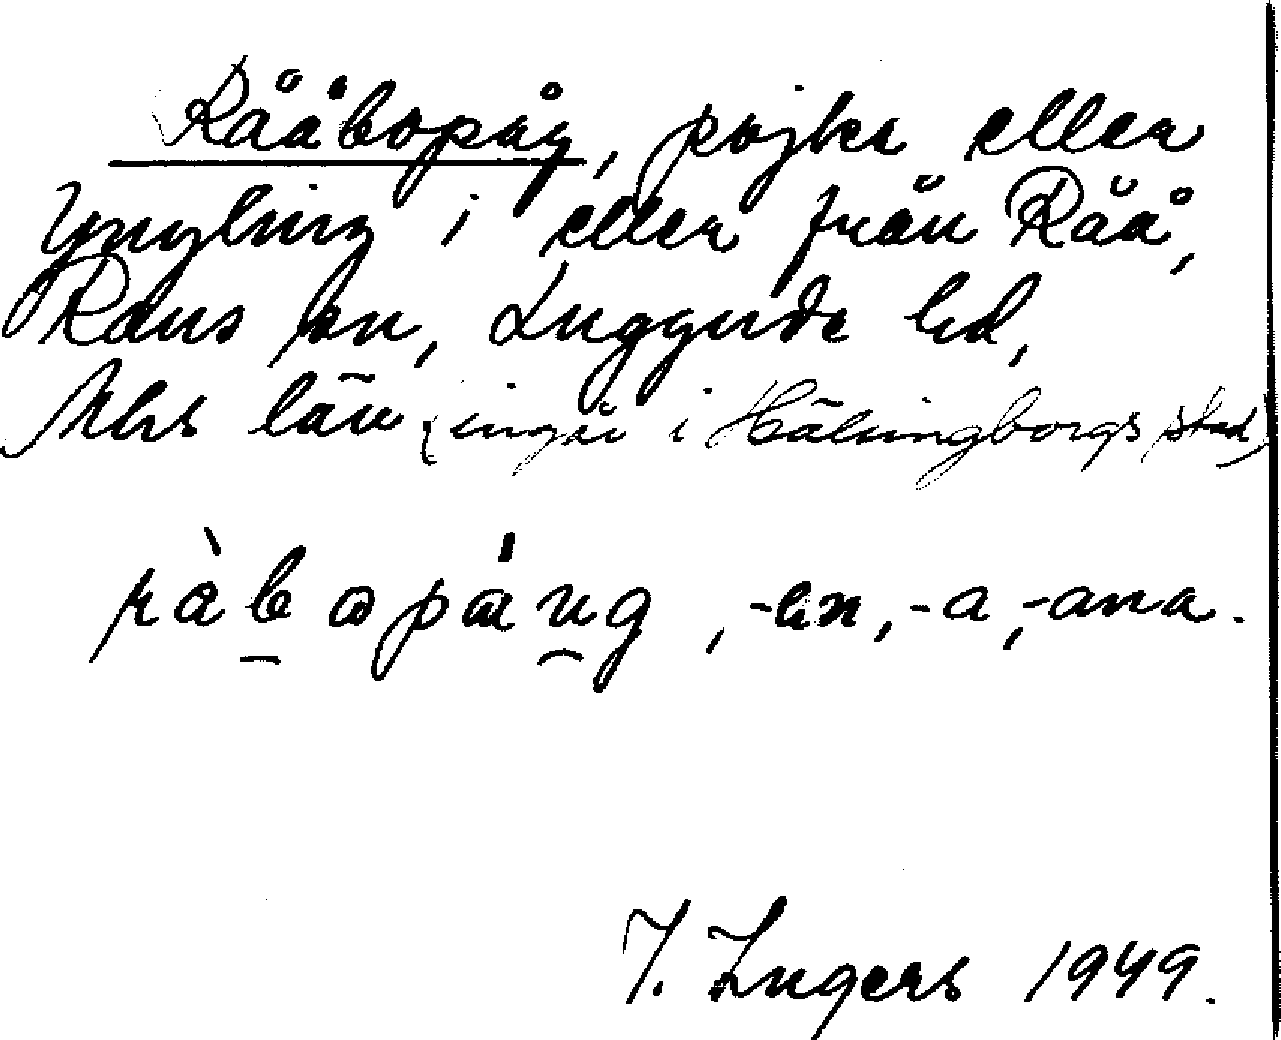 Rååbopåg, pojke eller
yngling i eller från Råå,
Raus sn, Luggude hd,
Mhs län (ingår i Hälsingborgs stad)
råbopang, -en, -a, -ana.
I. Ingers 1949.